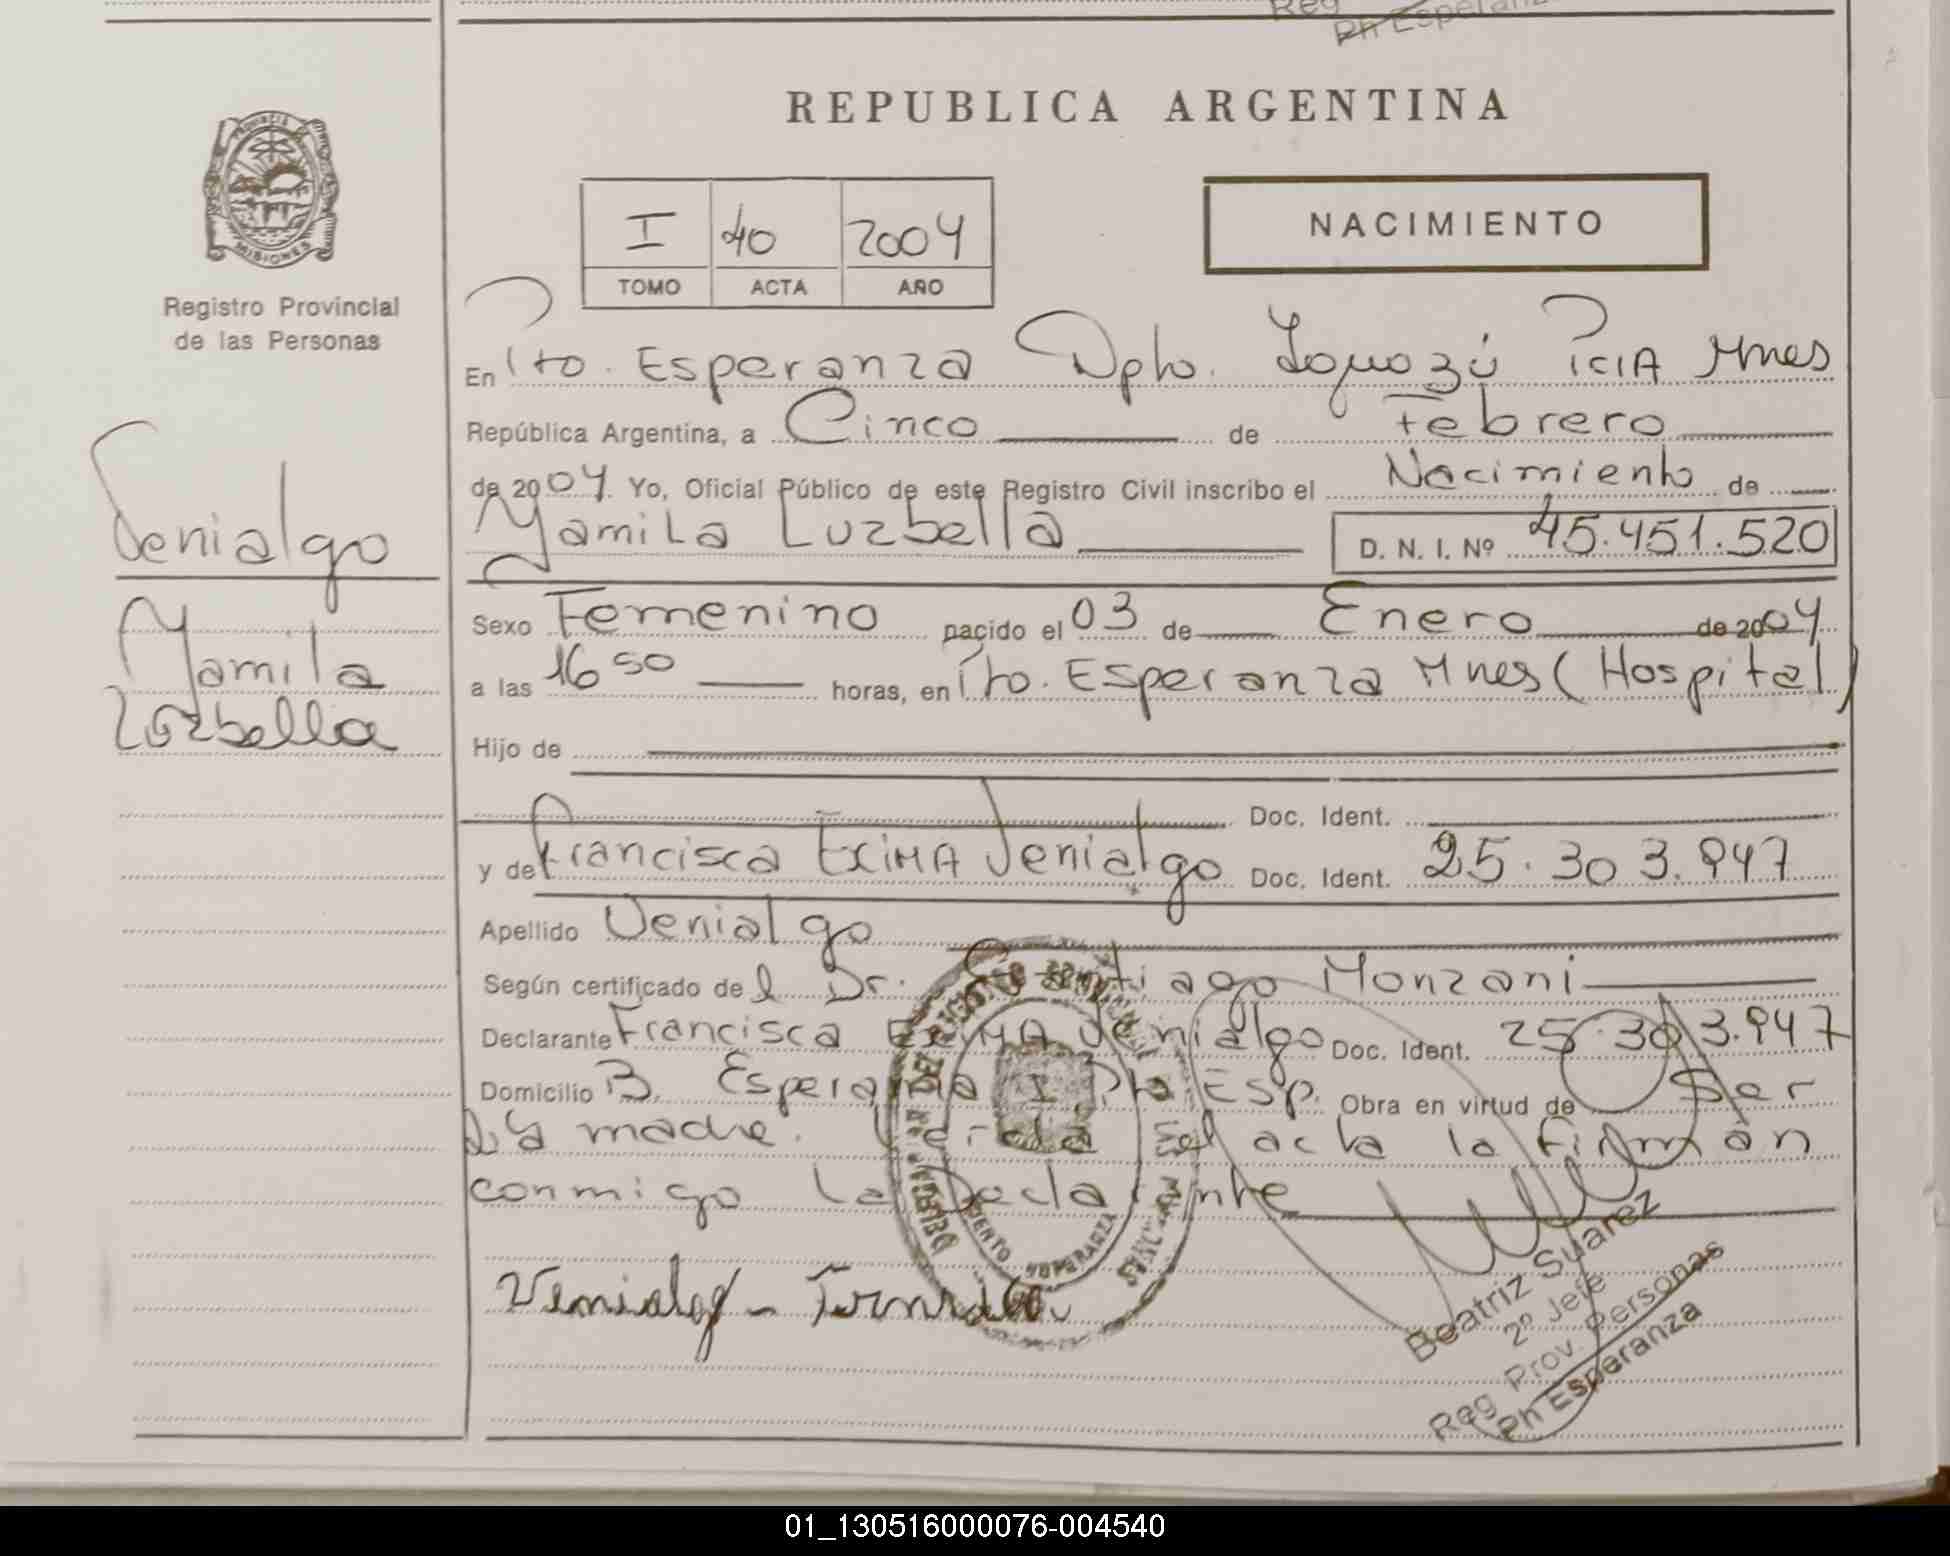 REPUBLICA ARGENTINA
PROVINCIA DE
MISIONES
Registro Provincial
de las Personas
I 40 2004
TOMO ACTA AÑO
NACIMIENTO
En Pto. Esperanza Dpto. Iguazú PciA Mnes
República Argentina, a Cinco de Febrero
de 2004 Yo, Oficial Público de este Registro Civil inscribo el Nacimiento de
Yamila Luzbella D. N. I. Nº 45.451.520
Venialgo
Yamila
Luzbella
Sexo Femenino nacido el 03 de Enero de 2004
a las 16 50 horas, en Pto. Esperanza Mnes (Hospital)
Hijo de
Doc. Ident.
y de Francisca ExiMA Venialgo Doc. Ident. 25.303.947
Apellido Venialgo
Según certificado del Dr. Santiago Monzani
Declarante Francisca ExiMA Venialgo Doc. Ident. 25.303.947
Domicilio B. Esperanza I Pto Esp. Obra en virtud de Ser
la madre. Leida el acta la firman
conmigo la Declarante
Venialgo
Beatriz Suarez
2º Jefe
Reg Prov. Personas
Pto Esperanza
01_130516000076-004540